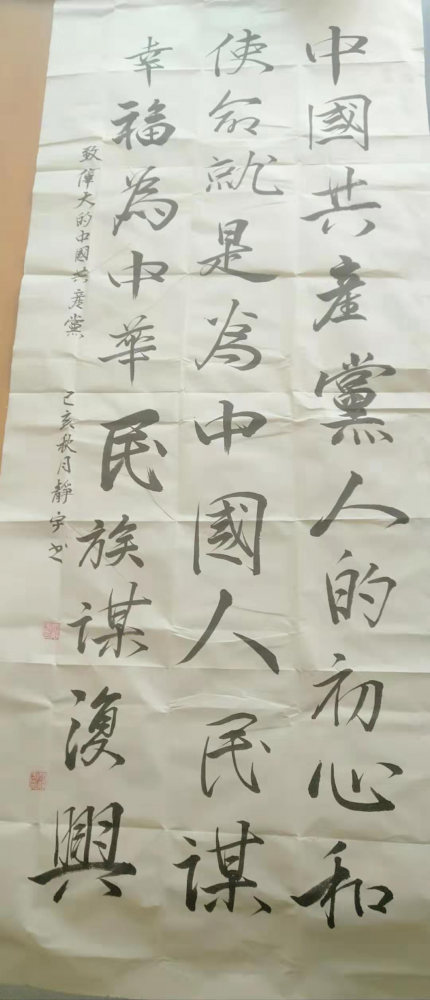 中國共產黨人的初心和
使命就是為中國人民謀
幸福為中華民族謀復興
致偉大的中國共產黨 己亥秋月靜宇书